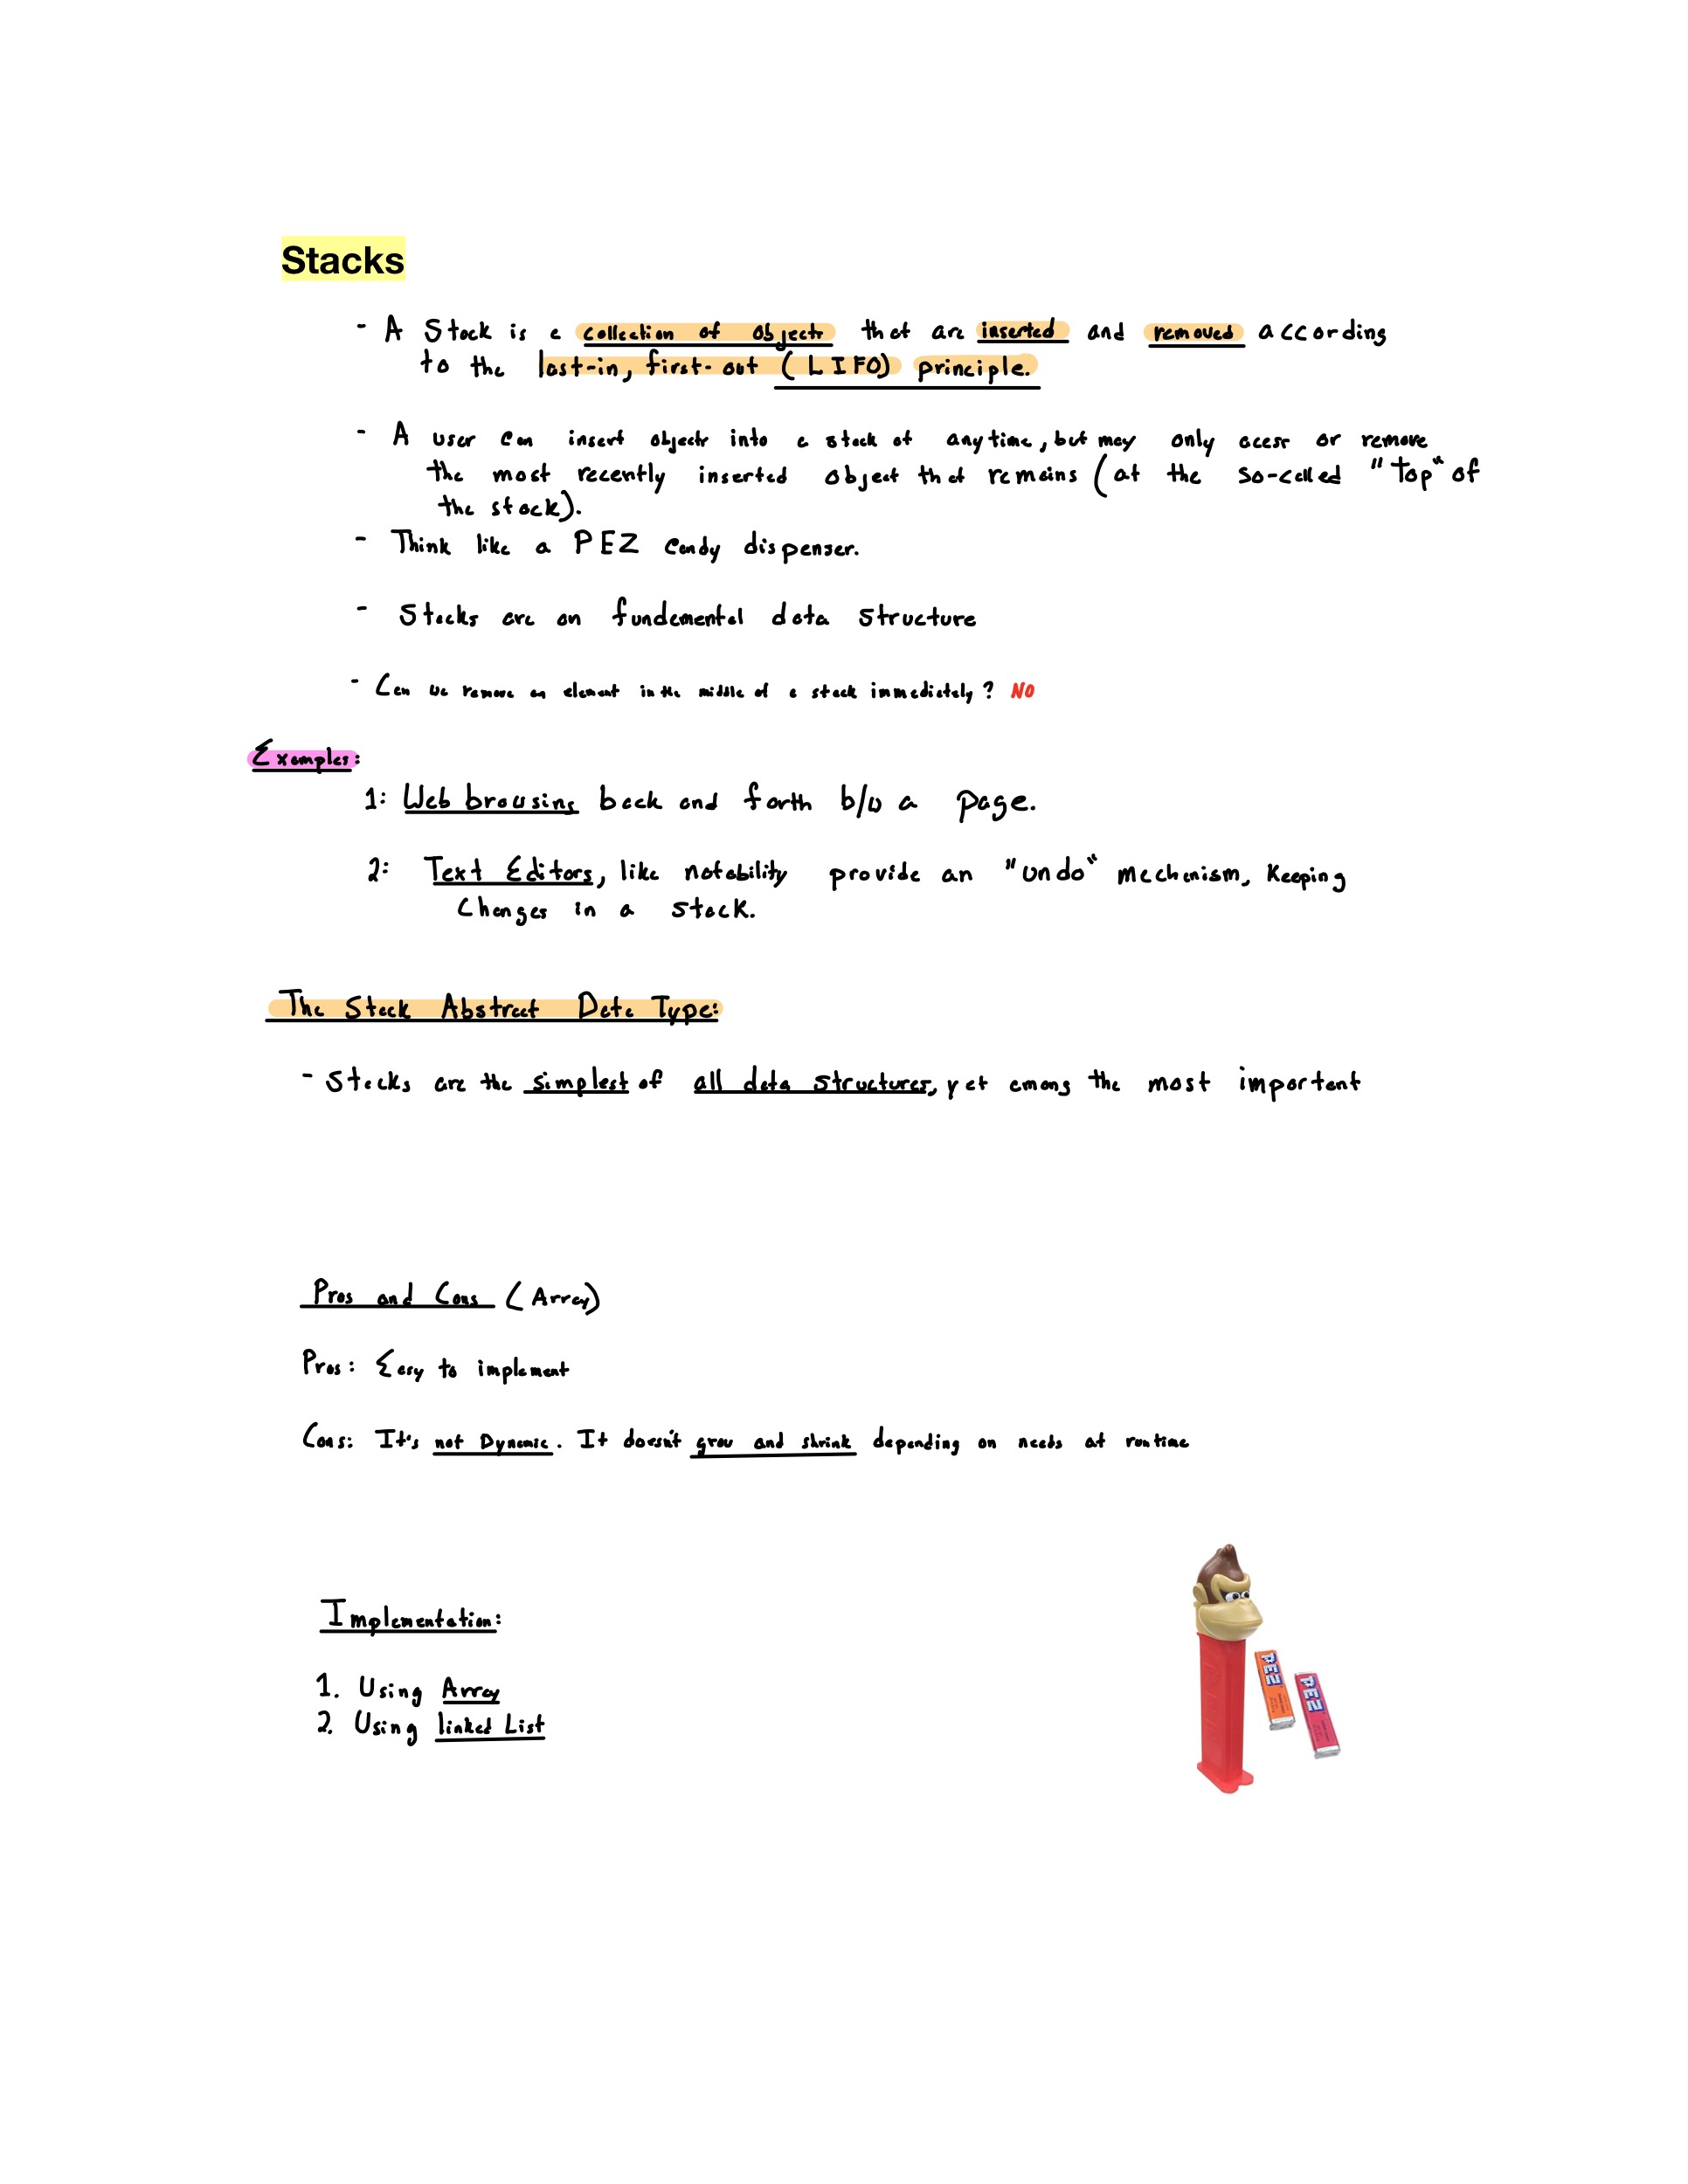 Stacks
- A Stack is a collection of objects that are inserted and removed according
to the last-in, first-out (LIFO) principle.
- A user can insert objects into a stack at any time, but may only acess or remove
the most recently inserted object that remains (at the so-called "top" of
the stack).
- Think like a PEZ Candy dispenser.
- Stacks are an fundemental data structure
- Can we remove an element in the middle of a stack immediately? NO
Examples:
1: Web browsing back and forth b/w a page.
2: Text Editors, like notability provide an "undo" mechanism, Keeping
Changes in a stack.
The Stack Abstract Data Type:
- Stacks are the simplest of all data structures, yet among the most important
Pros and Cons (Array)
Pros: Easy to implement
Cons: It's not Dynamic. It doesn't grow and shrink depending on needs at runtime
Implementation:
1. Using Array
2. Using linked List
PEZ
PEZ